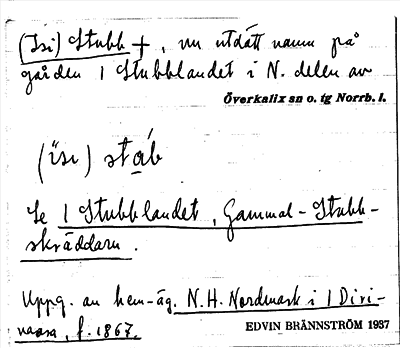 (Isi) Stubb +, nu utdött namn på
gården 1 Stubblandet i N. delen av
Överkalix sn o. tg Norrb. l.
(ïsı) stab
Se 1 Stubblandet, Gammal-Stubb-
skräddarn.
Uppg. av hem-äg. N.H. Nordmark i 1 Divi-
naara, f. 1867.
EDVIN BRÄNNSTRÖM 1937